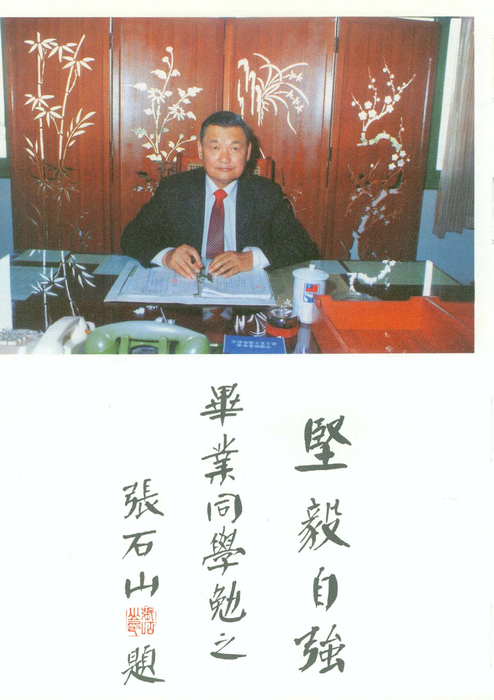 堅毅自強
畢業同學勉之
張石山題